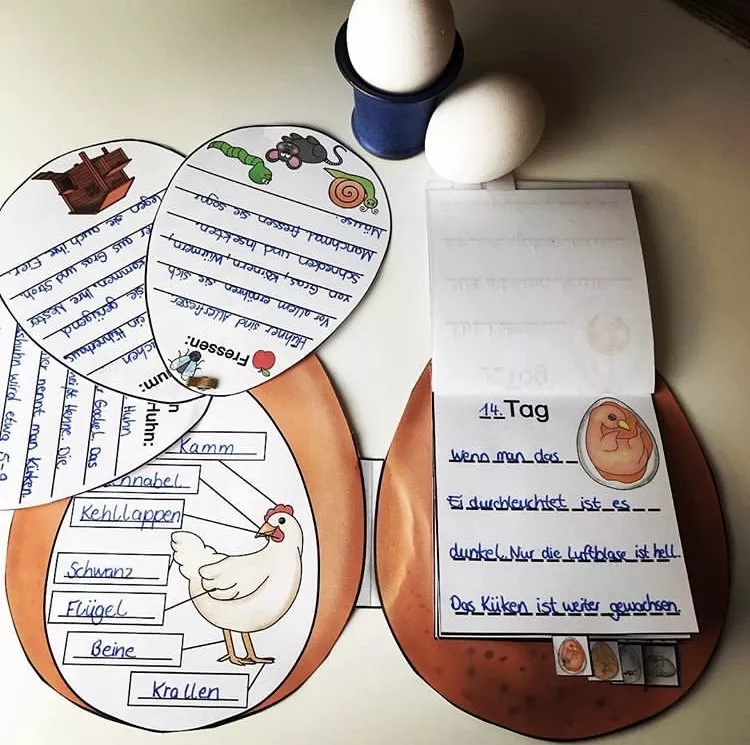 Fressen:
Hühner sind Allesfresser
Vor allem ernähren sie sich
von Gras, Körnern, Würmern,
Schnecken und Insekten.
Manchmal fressen sie sogar
Mäuse.
ein Hühnerhaus
sie genügend
Ihre Nester
aus Gras und Stroh
legen sie auch ihre Eier
Huhn:
Huhn
Gockel. Das
Henne. Die
nennt man Küken
huhn wird etwa 5-9
Kamm
Schnabel
Kehllappen
Schwanz
Flügel
Beine
Krallen
14. Tag
Wenn man das
Ei durchleuchtet ist es
dunkel. Nur die Luftblase ist hell.
Das Küken ist weiter gewachsen.